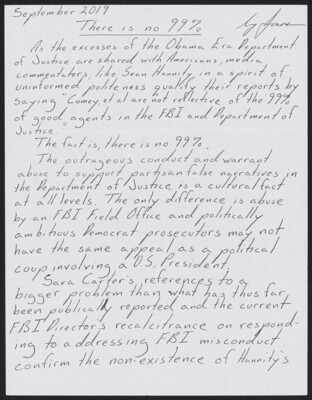 September 2019
There is no 99%
As the excesses of the Obama Era Department
of Justice are shared with Americans, media
commentators, like Sean Hannity, in a spirit of
uninformed politeness qualify their reports by
saying "Comey, et al are not reflective of the 99%
of good agents in the FBI and Department of
Justice."
The fact is, there is no 99%.
The outrageous conduct and warrant
abuse to support partisan false narratives in
the Department of Justice is a cultural fact
at all levels. The only difference is abuse
by an FBI Field Office and politically
ambitious Democrat prosecutors may not
have the same appeal as a political
coup involving a U.S. President.
Sara Carter's references to a
bigger problem than what has thus far
been publically reported and the current
FBI Director's recalcitrance on respond-
ing to addressing FBI misconduct
confirm the non-existence of Hannity's